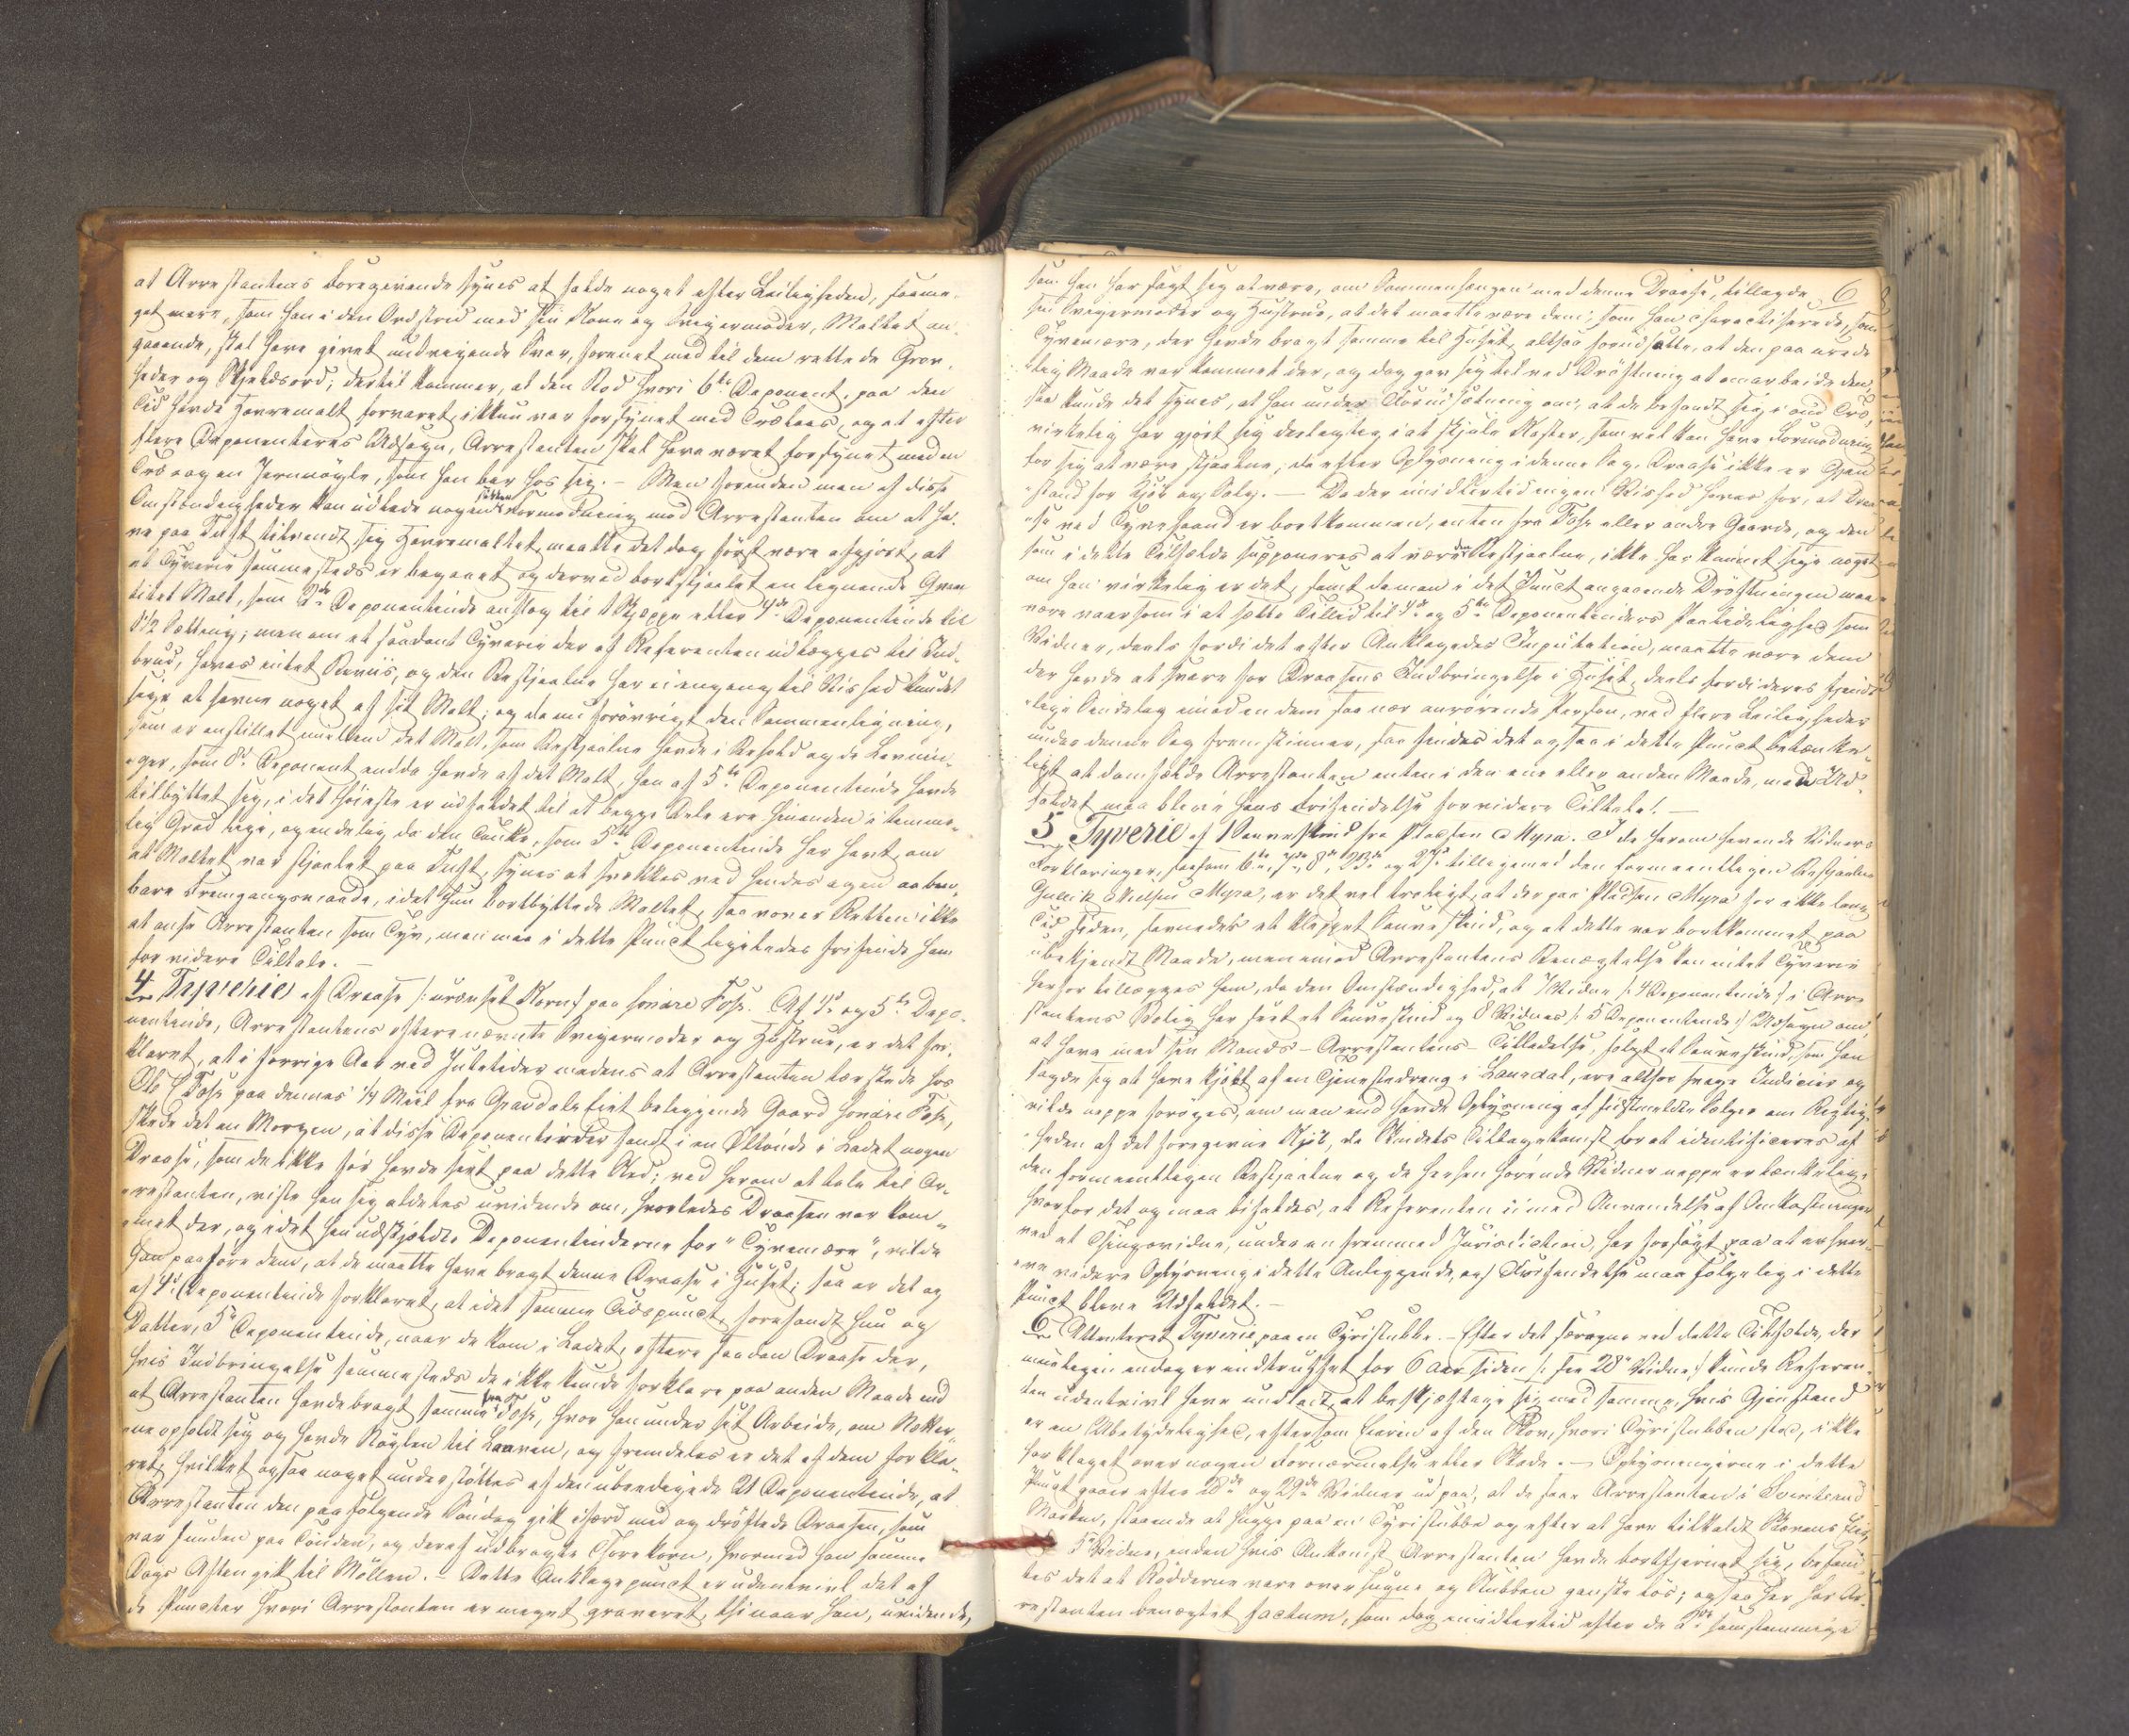 at Arrestantens Foregivende synes at falde noget efter Leiligheden, saame-
get mere, som han i den Ordstrid med sin Kone og Svigermoder, Maltet an-
gaaende, skal have givet undvigende Svar, forenet med til dem rettede Grov-
heder og Skjeldsord; dertil kommer, at den Bod hvori 6te Deponent paa den
Tid havde Havremalt forvaret, ikkun var forsynet med Trælaas, og at efter
flere Deponenteres Udsagn, Arrestanten skal have været forsynet med en
Træ og en Jernnøgle, som han bar hos sig. – Men forinden man af disse
Omstændigheder kan udlede nogen sikker Formodning mod Arrestanten om at ha-
ve paa Tuft tilvendt sig Havremaltet, maatte det dog først være afgjort, at
et Tyverie sammesteds er begaaet og derved bortstjaalet en lignende Qvan
titet Malt, som 2de Deponentinde anslog til 1 Skjeppe eller 4de Deponentinde til
1½ Sætting; men om et saadant Tyverie der af Referenten udlægges til Ind-
brud, haves intet Beviis, og den Bestjaalne har ei engang til Vished kundet
sige at savne noget af sit Malt; og da nu forøvrigt den Sammenligning,
som er anstillet mellem det Malt, som Bestjaalne havde i Behold og de Levnin-
ger, som 8de Deponent endda havde af det Malt, han af 5te Deponentinde havde
tilbyttet sig, i det Høieste er udfaldet til at begge Dele ere hinanden i temme-
lig Grad lige, og endelig da den Tanke, som 5te Deponentinde har havt, om
at Maltet var stjaalet paa Tuft, synes at svækkes ved hendes egen aaben-
bare Fremgangsmaade, idet hun bortbyttede Maltet, saa vover Retten ikke
at ansee Arrestanten som Tyv, men maa i dette Punct ligeledes frifinde ham
for videre Tiltale. –
4 Tyverie af Draase /: urenset Korn :/ paa søndre Foss. Af 4de og 5te Depo-
nentinde, Arrestantens oftere nævnte Svigermoder og Hustrue, er det for-
klaret, at i forrige Aar ved Juletider medens at Arrestanten tærskede hos
Ole Foss paa dennes ¼ Miil fra Gravdalsfiet beliggende Gaard søndre Foss,
skede det en Morgen, at disse Deponentinder fandt i en Øltønde i Ladet nogen
Draase, som de ikke før havde seet paa dette Sted; ved herom at tale til Ar-
restanten, viste han sig aldeles uvidende om, hvorledes Draasen var kom-
met der, og idet han udskjældte Deponentinderne for "Tyvemære", vilde
han paaføre dem, at de maatte have bragt denne Draase i Huset; saa er det og
af 4de Deponentinde forklaret, at idet samme Tidspunct, forefandt hun og
Datter, 5te Deponentinde, naar de kom i Ladet, oftere saadan Draase der,
hvis Indbringelse sammesteds de ikke kunde forklare paa anden Maade end
at Arrestanten havde bragt samme fra Foss, hvor han under sit Arbeide, om Netter-
ne opholdt sig og havde Nøglen til Laaven, og fremdeles er det af dem forkla-
ret, hvilket ogsaa noget understøttes af den ubeedigede 21 Deponentinde, at
Arrestanten den paafølgende Søndag gik ifærd med og drøftede Draasen, som
var funden paa Tønden, og deraf udbragte Thorekorn, hvormed han samme
Dags Aften gik til Møllen. – Dette Anklagepunct er udentvivl det af
de Puncter hvori Arrestanten er meget graveret, thi naar han, uvidende,
6
som han har sagt sig at være, om Sammenhængen med denne Draase, tillagde
sin Svigermoder og Hustrue, at det maatte være dem, som han characteriserede, som
Tyvemære, der havde bragt samme til Huset, altsaa forudsatte, at den paa urede
lig Maade var kommet der, og dog gav sig til ved Drøftning at omarbeide den,
saa kunde det synes, at han under Forudsætning om, at de befandt sig i ond Tro,
virkelig har gjort sig deelagtig i at skjule Koster, som vel kan have Formodning
for sig at være stjaalne, da efter Oplysning i denne Sag, Draase ikke er Gjen-
stand for Kjøb og Salg. – Da der imidlertid ingen Vished haves for, at Draa-
se ved Tyvehaand er bortkommen, enten fra Foss eller andre Gaarde, og den
som i dette Tilfælde supponeres at være den Bestjaalne, ikke har kunnet sige noget
om han virkelig er det, samt da man i det Punct angaaende Drøftningen maa
være varsom i at sætte Tillid til 4de og 5te Deponentinders Paalidelighed som
Vidner, deels fordi det efter Anklagedes Imputation, maatte være dem
der havde at svare for Draasens Indbringelse i Huset, deels fordi deres fjendt-
lige Sindelag imod en dem saa nær anrørende Person, ved flere Leiligheder
under denne Sag fremskinner, saa findes det ogsaa i dette Punct betænke-
ligt at domfælde Arrestanten enten i den ene eller anden Maade, men Ud-
faldet maa blive hans Frifindelse for videre Tiltale! –
5 Tyverie af 1 Saueskind fra Pladsen Myra. I de herom havende Vidners
Forklaringer, saasom 6te, 7de, 8de, 23de og 27de tilligemed den formeentligen Bestjaalne
Gullik Nielsen Myra, er det vel troligt, at der paa Pladsen Myra for ikke lang
Tid siden, savnedes et klippet Saueskind, og at dette var bortkommet paa
ubekjendt Maade, men imod Arrestantens Benægtelse kan intet Tyverie
herfor tillægges ham, da den Omstændighed, at 7 Vidne /: 4 Deponentinde :/ i Arre-
stantens Bolig har seet et Saueskind og 8 Vidnes /: 5 Deponentinde :/ Udsagn om,
at have med sin Mands – Arrestantens – Tilladelse, solgt et Saueskind, som han
sagde sig at have kjøbt af en Tjenestedreng i Laurdal, ere altfor svage Indicier og
vilde neppe forøges, om man end havde Oplysning af sidstmeldte Sælger om Rigtig-
heden af det foregivne Kjøb, da Skindets Tilbagekomst for at identificeres af
den formeentligen Bestjaalne og de herhen hørende Vidner neppe er tænkelig;
hvorfor det og maa bifaldes, at Referenten ei med Anvendelse af Omkostninger
ved et Thingsvidne, under en fremmed Jurisdiction, har forsøgt paa at erhver-
ve videre Oplysning i dette Anliggende, og Frifindelse maa følgelig i dette
Punct blive Udfaldet. –
6 Attenteret Tyverie paa en Tyristubbe. – Efter det særegne ved dette Tilfælde, der
mueligen endog er indtruffet for 6 Aar siden /: see 28de Vidne :/ kunde Referen-
ten udentvivl have undladt at beskjæftige sig med samme, hvis Gjenstand
er en Ubetydelighed, eftersom Eieren af den Skov, hvori Tyristubben stod, ikke
har klaget over nogen Fornærmelse eller Skade. – Oplysningerne i dette
Punct gaaer efter 28de og 29de Vidner ud paa, at de saae Arrestanten i
Marken, staaende at hugge paa en Tyristubbe og efter at have tilkaldt Skovens Eier,
5te Vidne, inden hvis Ankomst Arrestanten havde bortfjernet sig, befand-
tes det at Rødderne vare overhugne og Stubben ganske løs; ogsaa her har Ar-
restanten benægtet factum, som dog imidlertid efter de 2de samstemmige